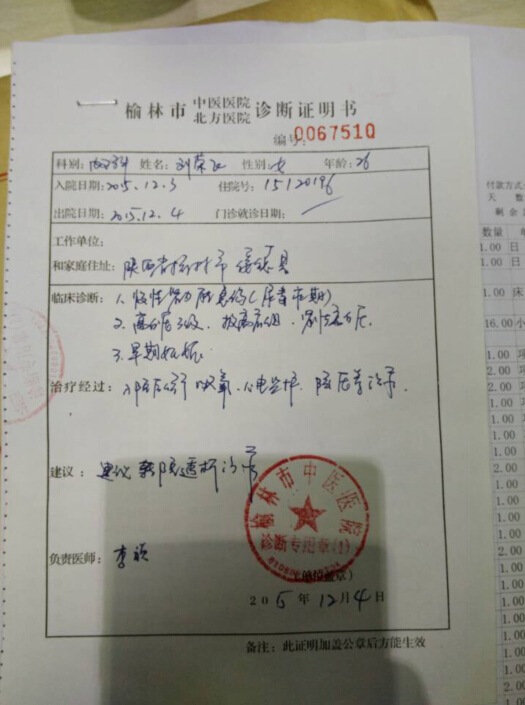 榆林市 中医医院 北方医院 诊断证明书
编号: 0067510
科别: 内科 姓名: 性别: 女 年龄: 26
入院日期: 2015.12.3 住院号: 15120196
出院日期: 2015.12.4 门诊就诊日期:
工作单位:
和家庭住址: 陕西省榆林市绥德县
临床诊断: 1.慢性肾功能衰竭(尿毒症期)
2.高血压3级.极高危组.
3.早期妊娠
治疗经过: 入院后给予吸氧、心电监护、降压等治疗
建议: 建议转院透析治疗
榆林市中医医院
诊断专用章(1)
负责医师: 李
(单位盖章)
2015年12月4日
备注: 此证明加盖公章后方能生效
付款方式:
天 数
剩 余
数量
1.00 日
1.00 日
1.00 床
16.00 小
1.00 项
2.00 项
2.00
1.00
1.00
1.00
1.00
1.00